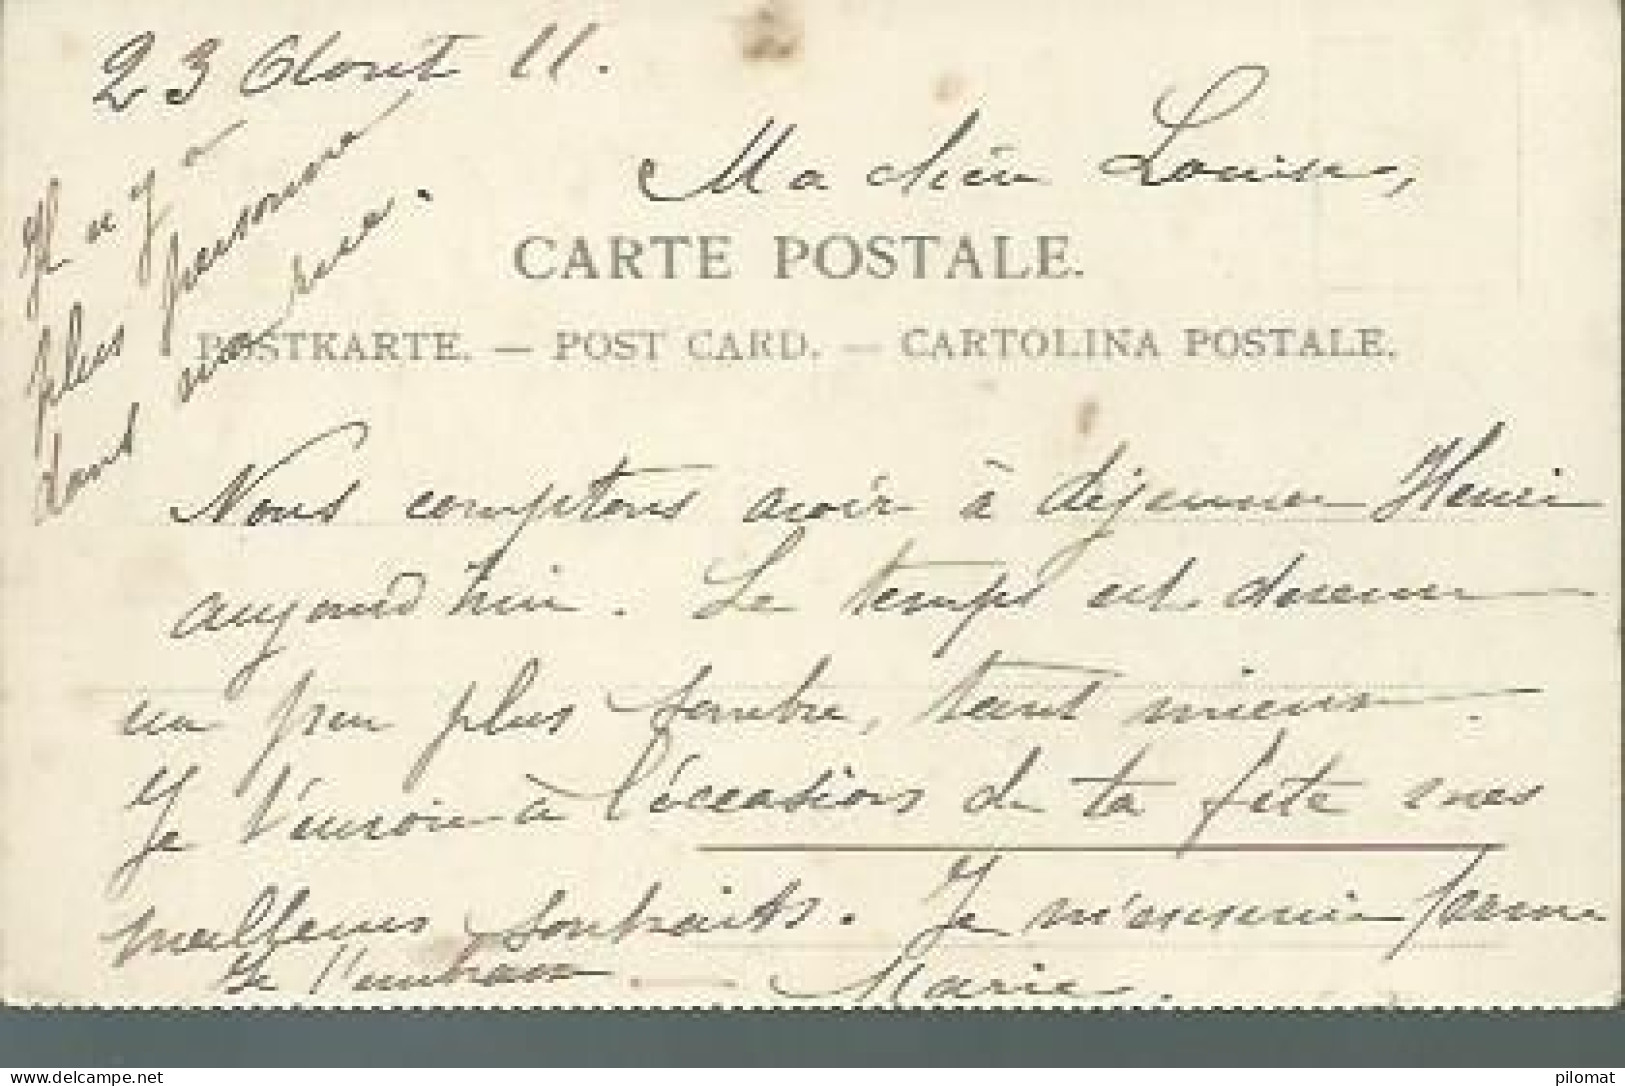 23 Août 11.
Ma chère Louise,
Il n'y a
plus personne
dans nos rues.
CARTE POSTALE.
POSTKARTE. — POST CARD. — CARTOLINA POSTALE.
Nous comptons avoir à déjeuner Henri
aujourd'hui. Le temps est devenu
un peu plus sombre, tant mieux.
Je t'envoie à l'occasion de ta fête mes
meilleurs souhaits. Je m'ennuie ferme
Je t'embrasse. — Marie.
www.delcampe.net
pilomat